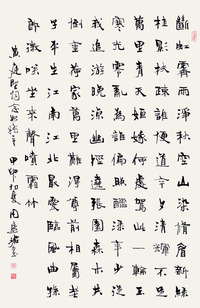 斷虹霽雨淨秋空山染脩眉新綠
桂影扶疎誰便道今夕清輝不足
萬里青天姮娥何處駕此一輪玉
寒光零亂為誰偏照醽醁年少從
我追遊晚涼幽徑繞張園森木共
倒金荷家萬里難得尊前相屬老
子平生江南江北最愛臨風曲孫
郎微笑坐來聲噴霜竹
黄庭堅詞念奴嬌 初夏 周